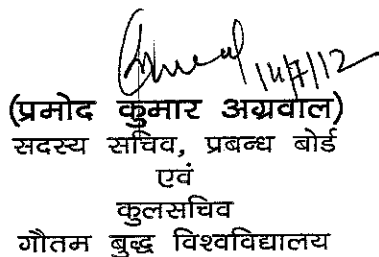 14/7/12
(प्रमोद कुमार अग्रवाल)
सदस्य सचिव, प्रबन्ध बोर्ड
एवं
कुलसचिव
गौतम बुद्ध विश्वविद्यालय